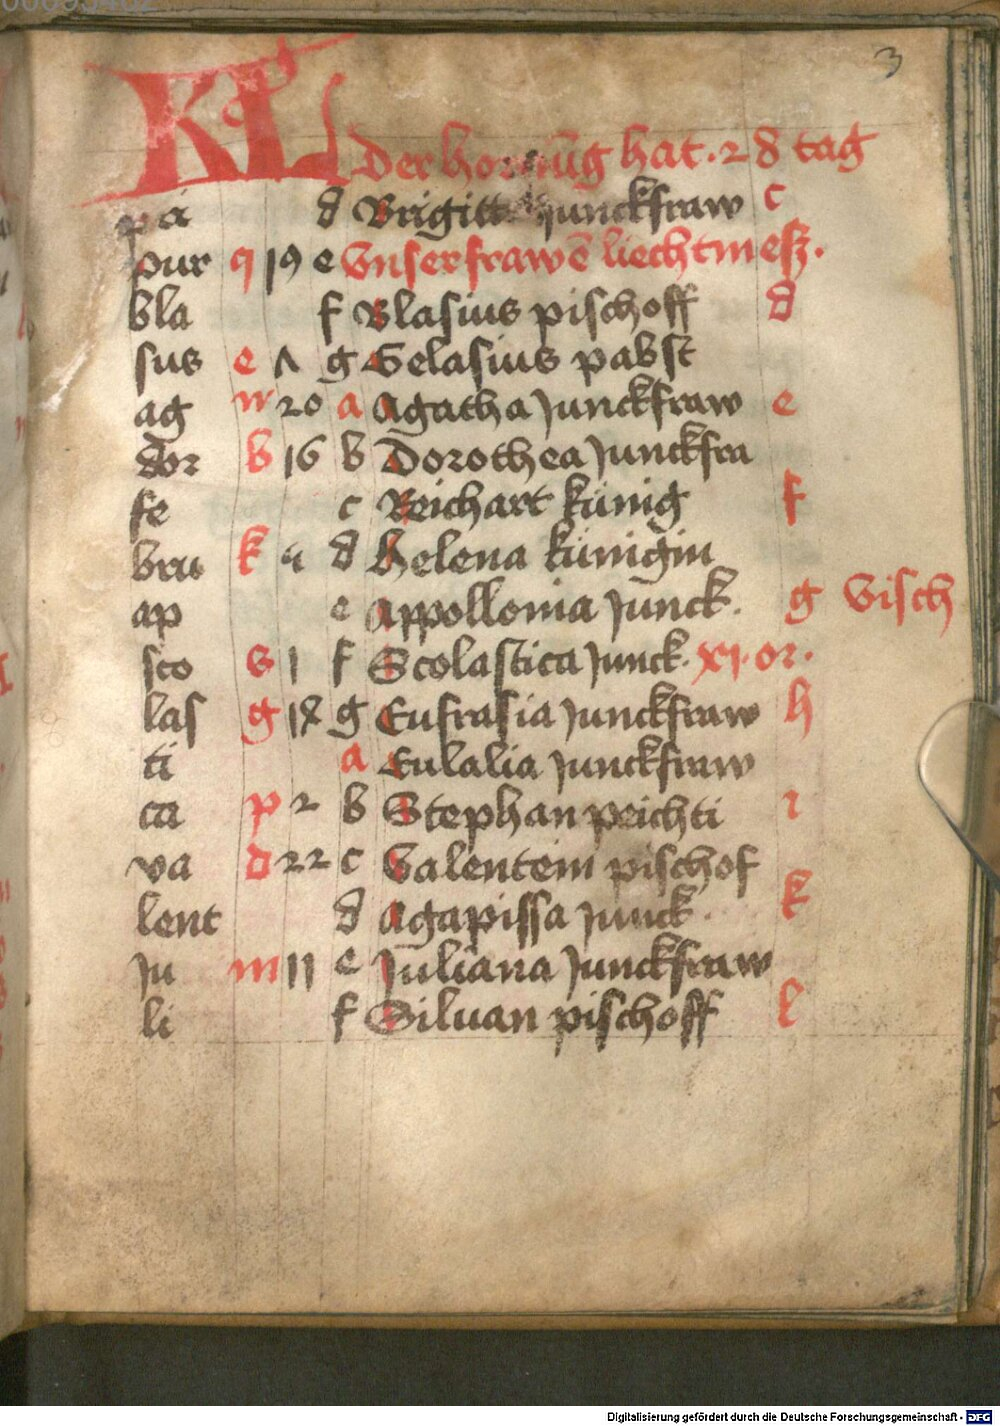 3
KL Der hornūg hat · 28 tag
pá d Brigitt Junckfraw c
pur q 19 e Unser frawē liechtmesz ·
bla f Blasius pischoff d
sus e Λ g Gelasius pabst
ag n 20 a Agatha Junckfraw e
dor b 16 b Dorothea Junckfra
fe c Reichart künig f
bru k 4 d Helena künigin
ap e Appollonia Junck · g Visch
sco s 1 f Scolastica Junck · xj · or ·
las g 18 g Eufrasia Junckfraw h
ti a Eulalia Junckfraw
ca p 2 b Stephan peichti i
va d 22 c Valentein pischof
lent d Agapissa Junck · k
Ju m 11 e Juliana Junckfraw
li f Siluan pischoff l
Digitalisierung gefördert durch die Deutsche Forschungsgemeinschaft - DFG